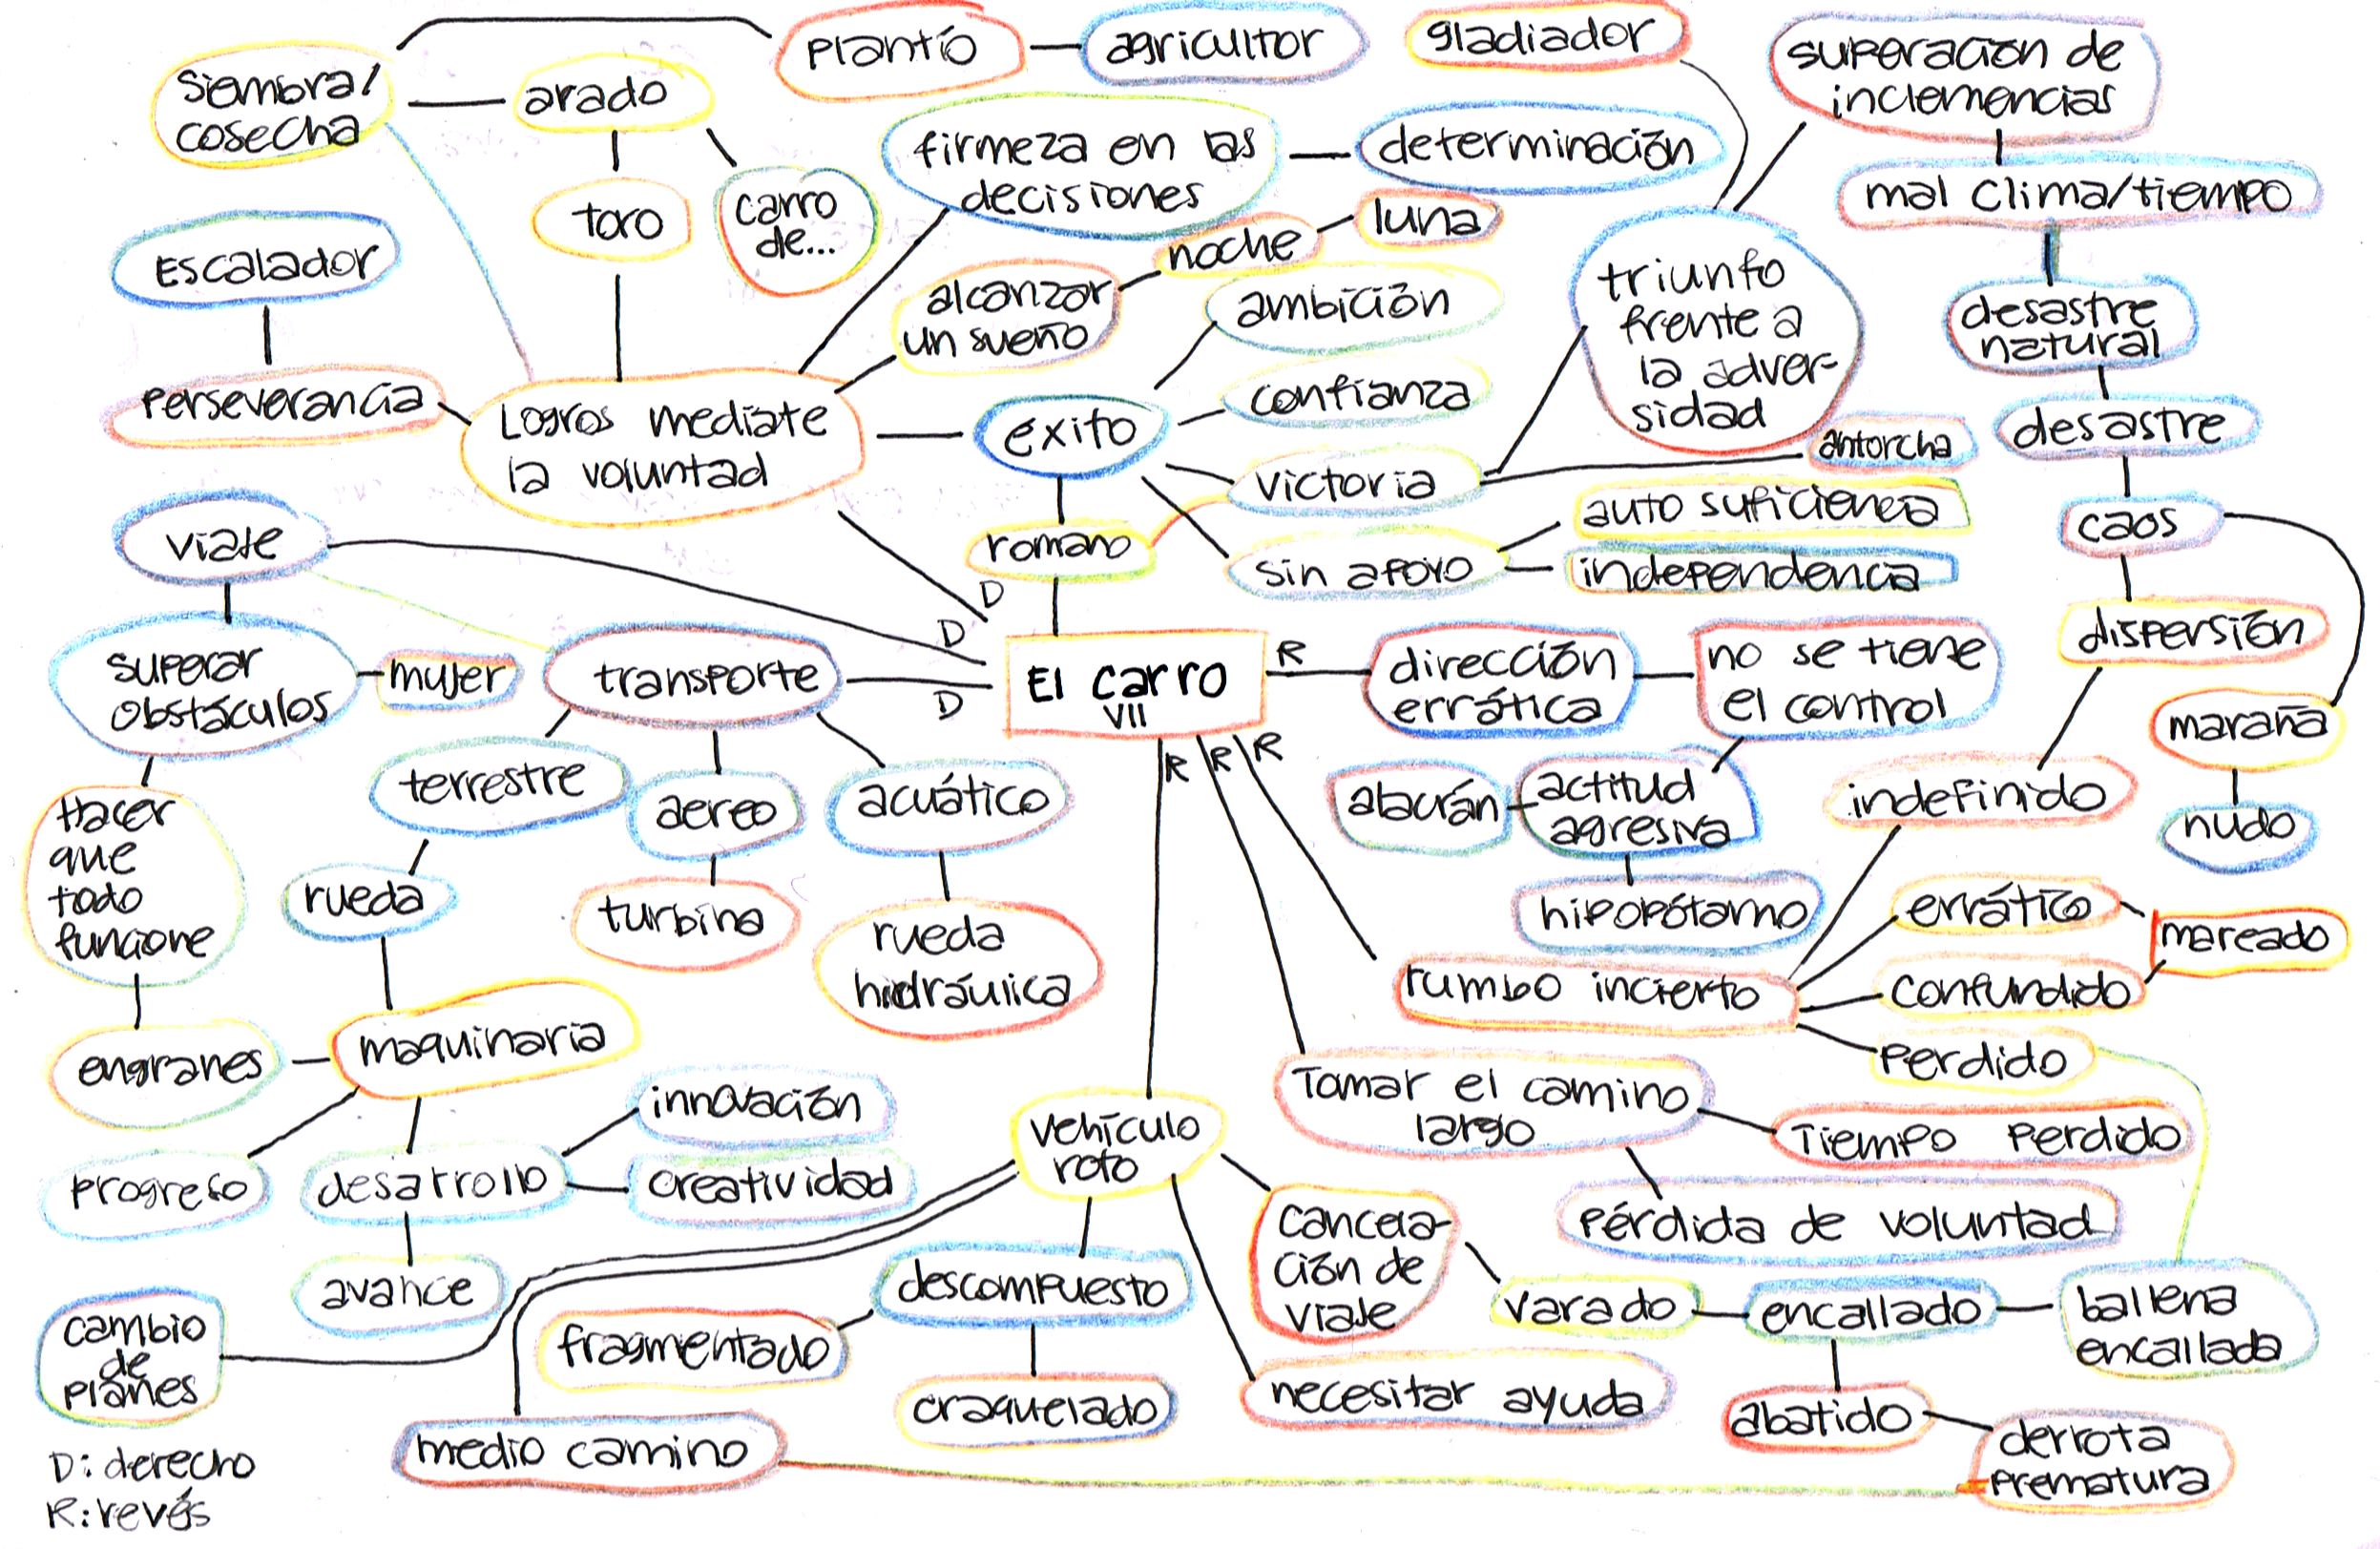 Siembra/
cosecha
arado
Plantío
agricultor
gladiador
superación de
inclemencias
toro
carro
de...
firmeza en las
decisiones
determinación
mal clima/tiempo
Escalador
noche
luna
alcanzar
un sueño
ambición
triunfo
frente a
la adver-
sidad
desastre
natural
Perseverancia
Logros mediate
la voluntad
éxito
confianza
antorcha
desastre
victoria
auto suficiencia
caos
viaje
romano
sin apoyo
independencia
dispersión
D
D
D
superar
obstáculos
mujer
transporte
El carro
VII
R
dirección
errática
no se tiene
el control
maraña
R
R
R
terrestre
aereo
acuático
alacrán
actitud
agresiva
indefinido
nudo
Hacer
que
todo
funcione
rueda
turbina
rueda
hidráulica
hipopótamo
errático
mareado
rumbo incierto
confundido
perdido
engranes
maquinaria
innovación
vehículo
roto
Tomar el camino
largo
Tiempo Perdido
progreso
desarrollo
creatividad
pérdida de voluntad
avance
descompuesto
cancela-
ción de
viaje
varado
encallado
ballena
encallada
cambio
de
planes
fragmentado
craquelado
necesitar ayuda
abatido
derrota
prematura
medio camino
D: derecho
R: revés